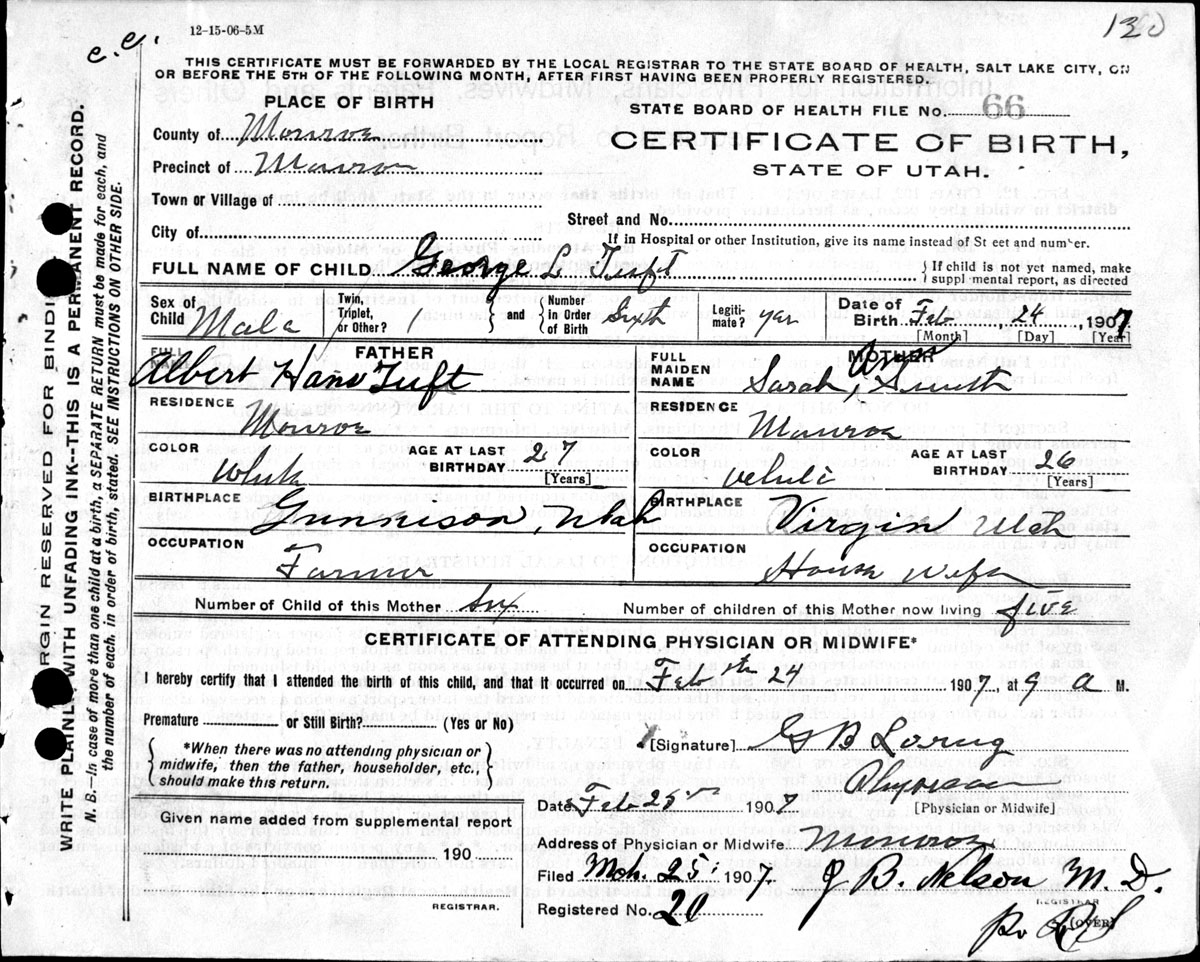 12-15-06-5M
c.c.
THIS CERTIFICATE MUST BE FORWARDED BY THE LOCAL REGISTRAR TO THE STATE BOARD OF HEALTH, SALT LAKE CITY, ON
OR BEFORE THE 5TH OF THE FOLLOWING MONTH, AFTER FIRST HAVING BEEN PROPERLY REGISTERED.
PLACE OF BIRTH
County of Monroe
Precinct of Monroe
Town or Village of
City of
STATE BOARD OF HEALTH FILE No. 66
CERTIFICATE OF BIRTH,
STATE OF UTAH.
Street and No.
If in Hospital or other Institution, give its name instead of St eet and number.
FULL NAME OF CHILD George L Tuft { If child is not yet named, make
suppl mental report, as directed
Sex of Child Male { Twin, Triplet, or Other? } and { Number in Order of Birth Sixth Legiti-mate? yes Date of Birth Feb 24, 1907
[Month] [Day] [Year]
FULL NAME FATHER
Albert Hans Tuft
RESIDENCE
Monroe
COLOR White AGE AT LAST BIRTHDAY 27
[Years]
BIRTHPLACE
Gunnison, Utah
OCCUPATION
Farmer
FULL MAIDEN NAME MOTHER
Sarah Ann Smith
RESIDENCE
Monroe
COLOR White AGE AT LAST BIRTHDAY 26
[Years]
BIRTHPLACE
Virgin Utah
OCCUPATION
House wife
Number of Child of this Mother Six Number of children of this Mother now living five
CERTIFICATE OF ATTENDING PHYSICIAN OR MIDWIFE*
I hereby certify that I attended the birth of this child, and that it occurred Feb 24 1907, at 9 a M.
Premature or Still Birth? (Yes or No)
*When there was no attending physician or
midwife, then the father, householder, etc.,
should make this return.
Given name added from supplemental report
190
REGISTRAR.
[Signature] G B Loring
Physician
[Physician or Midwife]
Date Feb 25 1907
Address of Physician or Midwife Monroe
Filed Mch. 25 1907. J B. Nelson M. D.
REGISTRAR
Registered No. 20
(OVER)
MARGIN RESERVED FOR BINDING
WRITE PLAINLY WITH UNFADING INK--THIS IS A PERMANENT RECORD.
N. B.--In case of more than one child at a birth, a SEPARATE RETURN must be made for each, and
the number of each, in order of birth, stated. SEE INSTRUCTIONS ON OTHER SIDE.